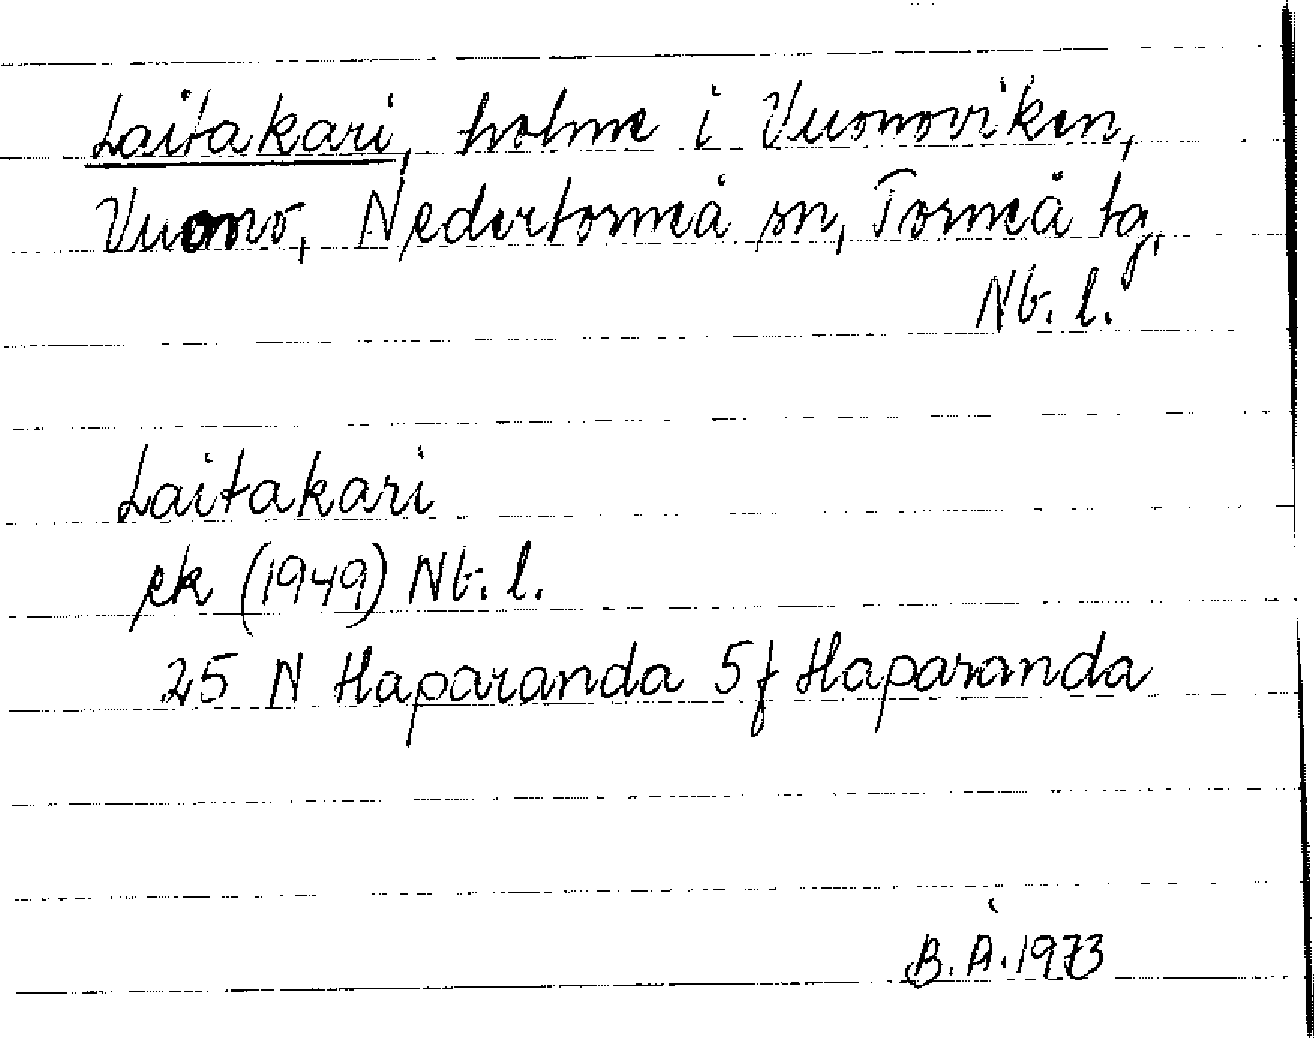 Laitakari, holme i Vuonoviken,
Vuono, Nedertorneå sn, Torneå tg,
Nb. l.
Laitakari
ek (1949) Nb. l.
25 N Haparanda 5f Haparanda
B. Å. 1973